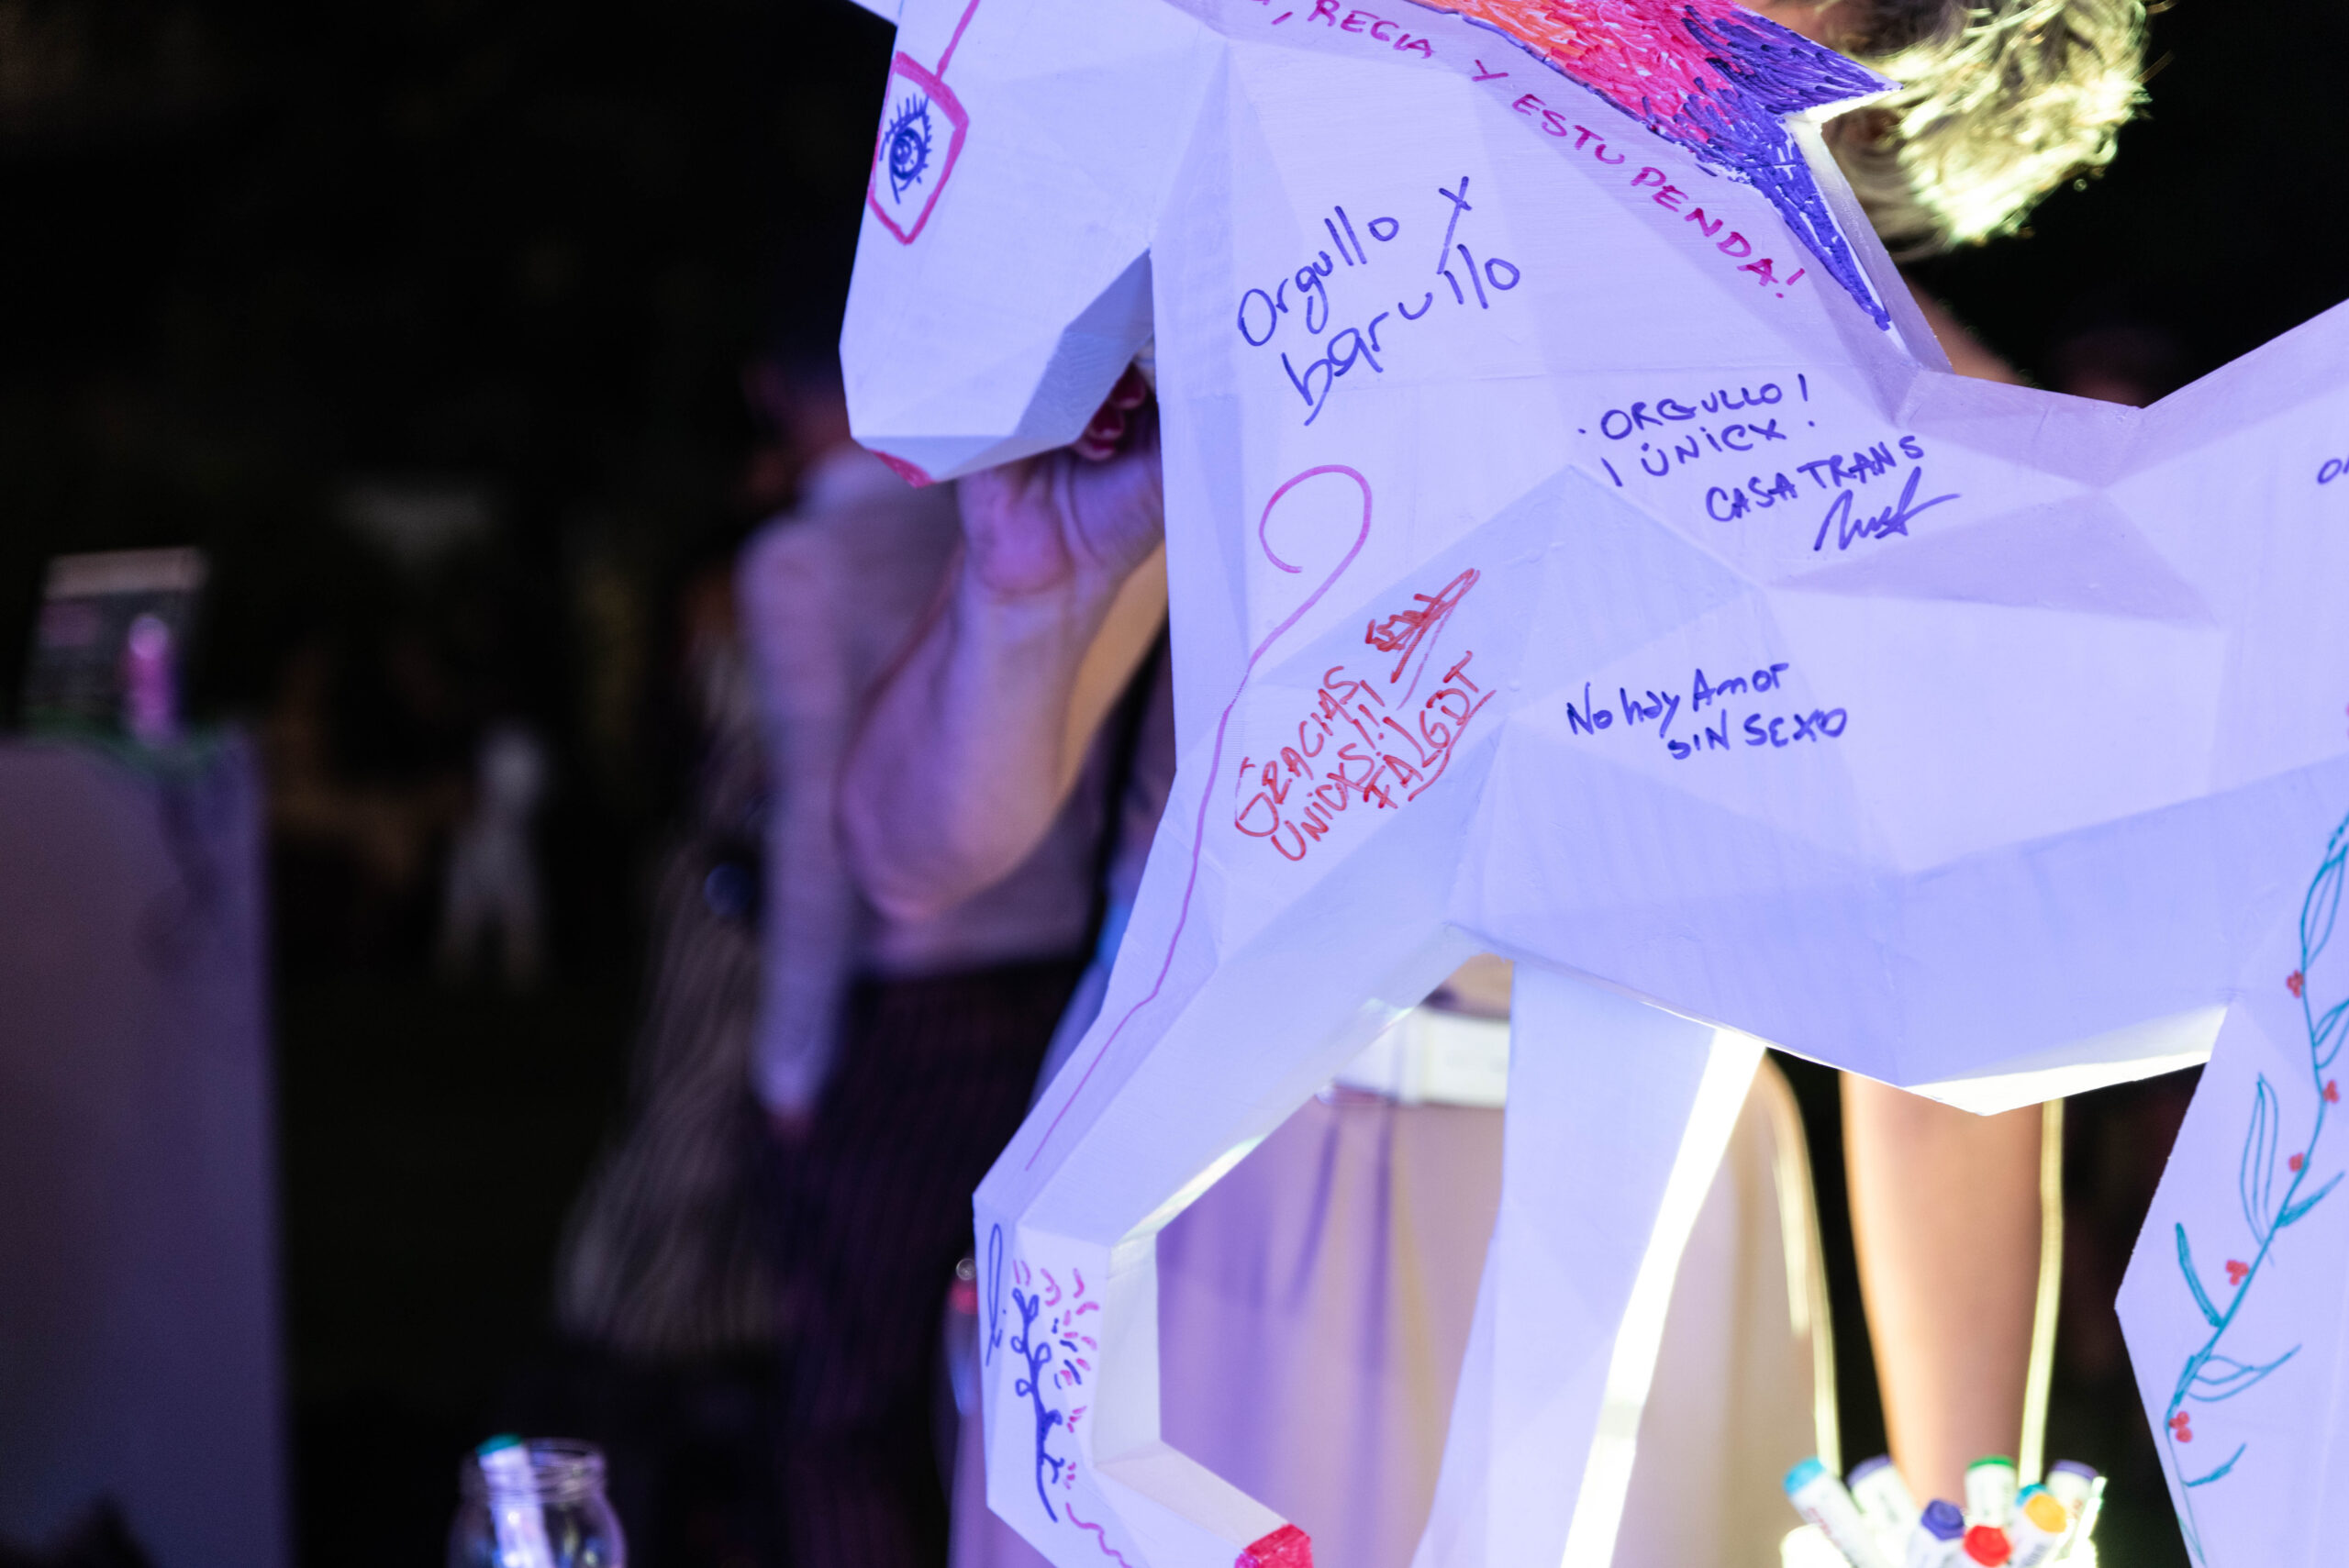 REGIA Y ESTUPENDA!
Orgullo X
barullo
¡ORGULLO!
¡ÚNICX!
CASA TRANS
GRACIAS,
UNICXS!!!
FALGDT
No hay Amor
SIN SEXO